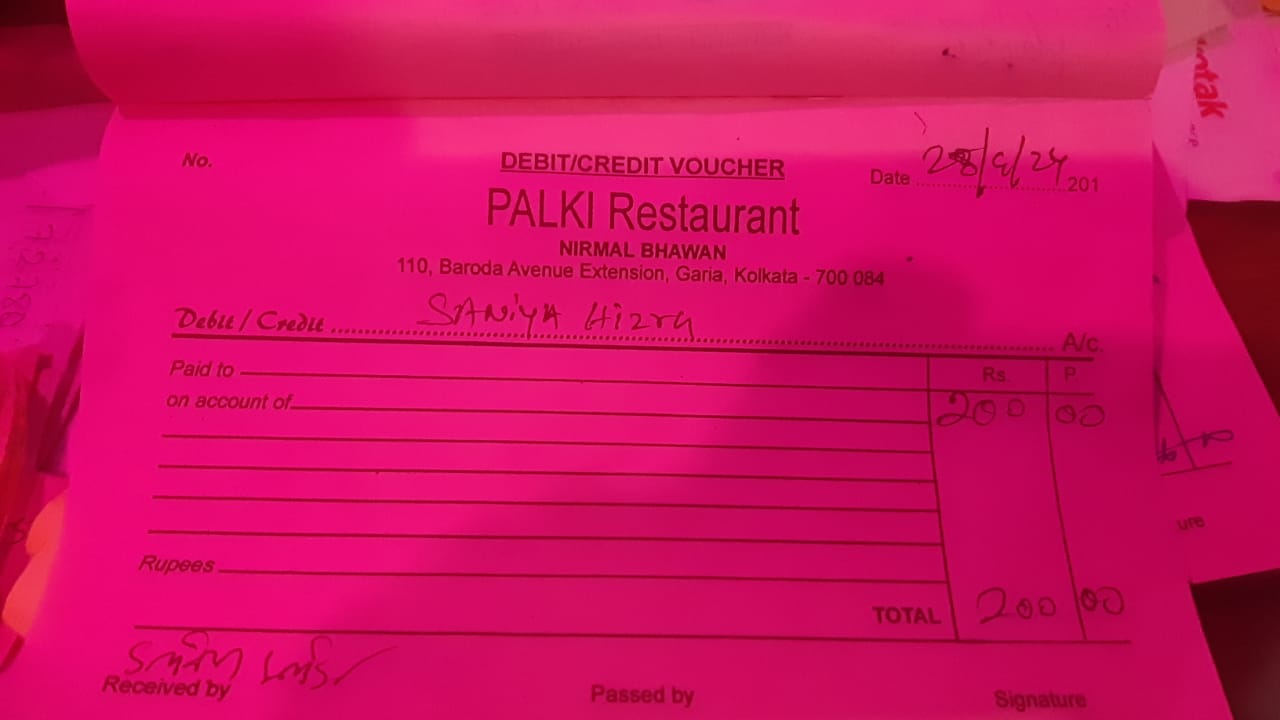 No.
DEBIT/CREDIT VOUCHER
Date 28/6/24 201
PALKI Restaurant
NIRMAL BHAWAN
110, Baroda Avenue Extension, Garia, Kolkata - 700 084
Debit / Credit SANiYA Hizra A/c.
Paid to Rs. P.
on account of 200 00
Rupees
TOTAL 200 00
Received by Passed by Signature
ntak
ure